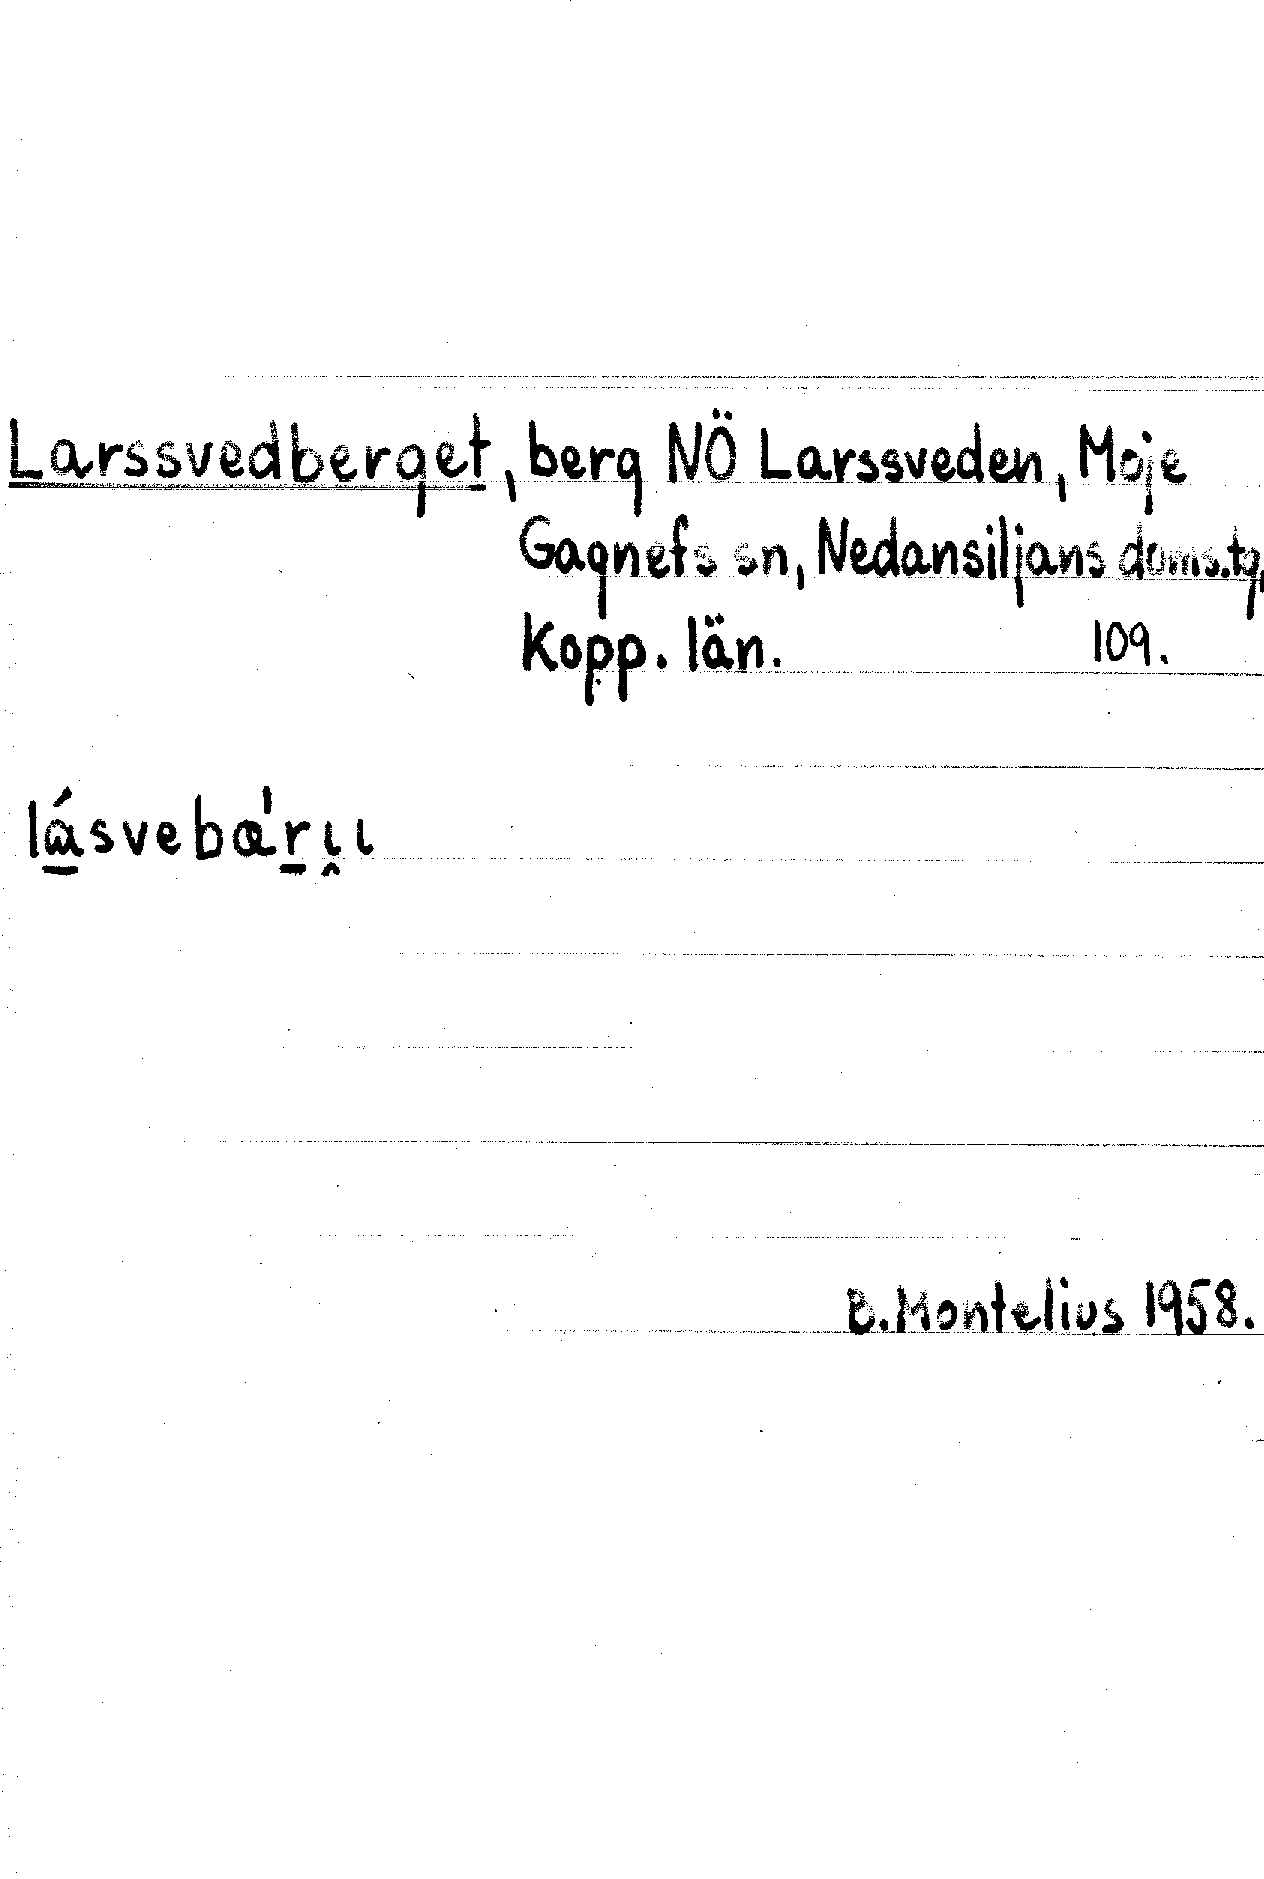 Larssvedberget, berg NÖ Larssveden, Moje
Gagnefs sn, Nedansiljans doms.tg,
Kopp. län. 109.
lásvebæ̀r̠ı̯ı
B. Montelius 1958.